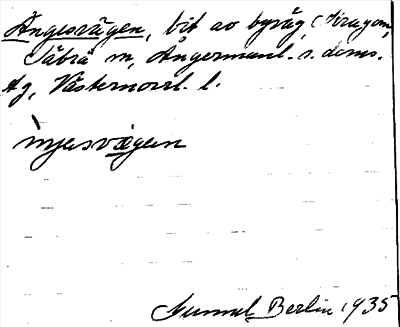 Ängesvägen, bit av byväg, Kragom,
Säbrå sn, Ångermanl. s. doms.
hg, Västernorrl. l.
ìŋesvägen
Gunnel Berlin 1935